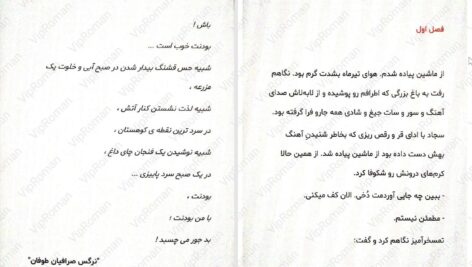 فصل اول
از ماشین پیاده شدم. هوای تیرماه بشدت گرم بود. نگاهم
رفت به باغ بزرگی که اطرافم رو پوشیده و از لابه‌لاش صدای
آهنگ و سور و سات جیغ و شادی همه جارو فرا گرفته بود.
سجاد با ادای قر و رقص ریزی که بخاطر شنیدنِ آهنگ
بهش دست داده بود از ماشین پیاده شد. از همین حالا
کرم‌های درونش رو شکوفا کرد.
- ببین چه جایی آوردمت دُخی. الان کف میکنی.
- مطمئن نیستم.
تمسخرآمیز نگاهم کرد و گفت:
باش !
بودنت خوب است ...
شبیه حس قشنگ بیدار شدن در صبح آبی و خلوت یک
مزرعه ،
شبیه لذت نشستن کنار آتش ،
در سرد ترین نقطه ی کوهستان ،
شبیه نوشیدن یک فنجان چای داغ ،
در یک صبح سرد پاییزی ...
بودنت ،
با من بودنت ؛
بد جور می چسبد !
"نرگس صرافیان طوفان"
VipRoman